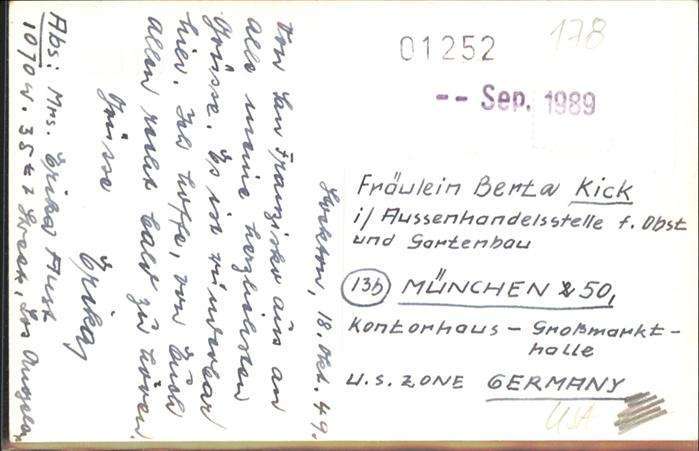 01252
178
-- Sep. 1989
Stockton, 18. Okt. 49.
Von San Franzisko aus an
alle meine herzlichsten
Grüsse. Es ist wunderbar
hier. Ich hoffe, von Euch
allen recht bald zu hören.
Grüsse
Erika
Abs: Mrs. Erika Aust
1070 W. 35th Street, Los Angeles
Fräulein Berta Kick
i/ Aussenhandelsstelle f. Obst
und Gartenbau
13b MÜNCHEN 50,
Kontorhaus - Großmarkt-
halle
U.S. ZONE GERMANY
USA